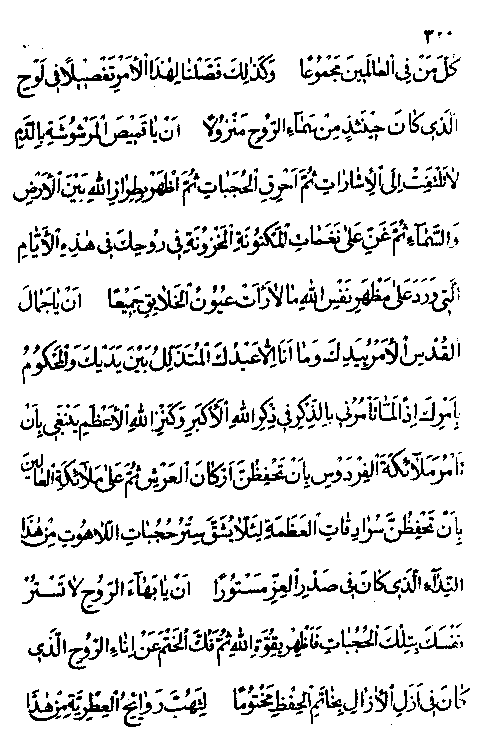 ٣٠٠
كلّ من في العالمين مجموعًا وكذلك فصّلنا لهذا الأمر تفصيلًا في لوح
الّذي كان حينئذٍ من سماء الرّوح منزولًا ان يا قميص المرشوشة بالدّم
لا تلتفت إلى الإشارات ثمّ احرق الحجبات ثمّ اظهر بطراز الله بين الأرض
والسّمآء ثمّ غنّ على نغمات المكنونة المخزونة في روحك في هذه الأيّام
الّتي ورد على مظهر نفس الله ما لا رأت عيون الخلايق جميعًا ان يا جمال
القدس الأمر بيدك وما انا الّا عبدك المتذلّل بين يديك والمحكوم
بامرك اذًا لمّا تأمرني بالذّكر في ذكر الله الأكبر وكنز الله الأعظم ينبغي بأن
تأمر ملآئكة الفردوس بأن تحفظنّ اركان العرش ثمّ على ملآئكة العالين
بأن تحفظنّ سرادقات العظمة لئلّا يشقّ ستر حجبات اللاهوت من هذا
النّدآء الّذي كان في صدر العزّ مستورًا ان يا بهآء الرّوح لا تستر
نفسك بتلك الحجبات فاظهر بقوّة الله ثمّ فكّ الختم عن إناء الرّوح الّذي
كان في ازل الأزال بخاتم الحفظ مختومًا لتهبّ روايح العطريّة من هذا